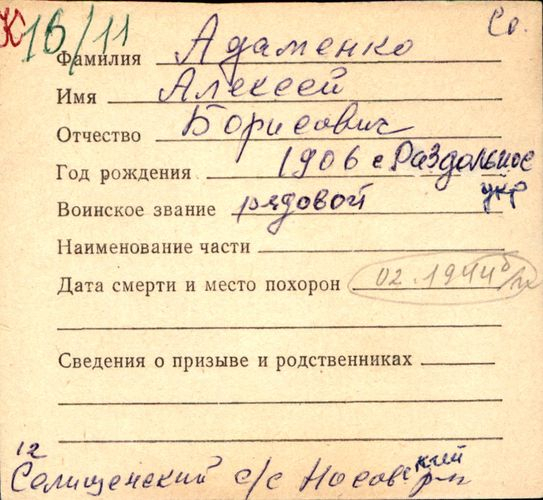 К 16/11 Со.
Фамилия Адаменко
Имя Алексей
Отчество Борисович
Год рождения 1906 с Раздольное
укр
Воинское звание рядовой
Наименование части
Дата смерти и место похорон 02.1944 б/п
Сведения о призыве и родственниках
12
Селищенский с/с Носовский р-н